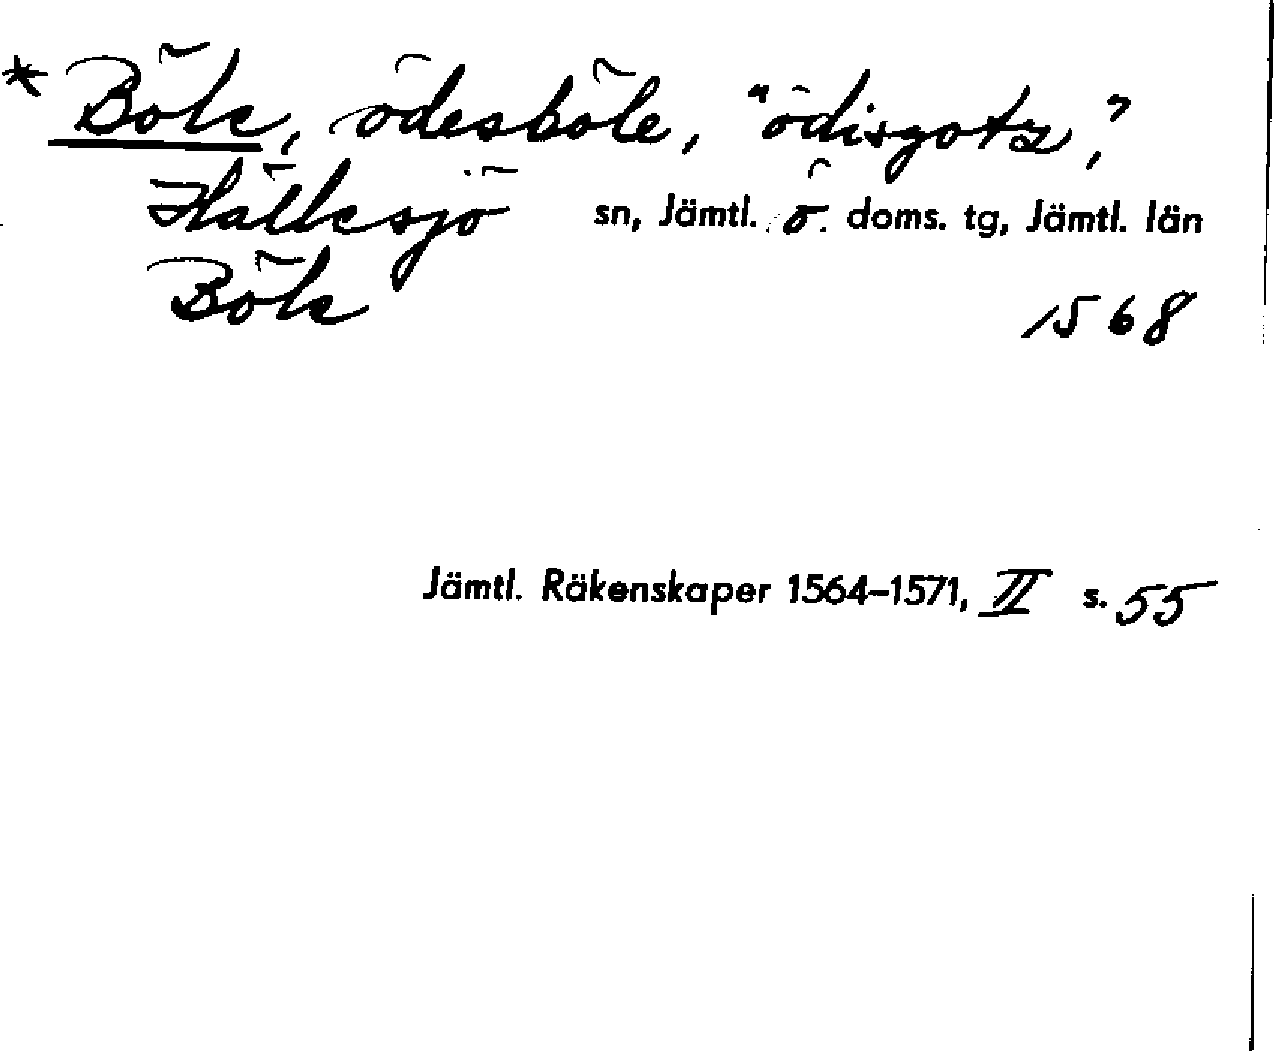 * Böle, ödesböle, "ödisgotz,"
Hällesjö sn, Jämtl. ö. doms. tg, Jämtl. län
Böle 1568
Jämtl. Räkenskaper 1564–1571, II s. 55